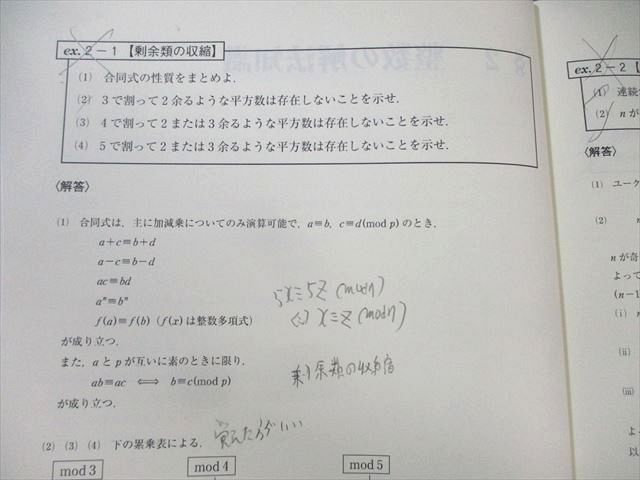 ex.2-1【剰余類の収縮】
(1) 合同式の性質をまとめよ.
(2) 3で割って2余るような平方数は存在しないことを示せ.
(3) 4で割って2または3余るような平方数は存在しないことを示せ.
(4) 5で割って2または3余るような平方数は存在しないことを示せ.
〈解答〉
(1) 合同式は,主に加減乗についてのみ演算可能で,a≡b, c≡d(mod p)のとき,
a+c≡b+d
a-c≡b-d
ac≡bd
aⁿ≡bⁿ
f(a)≡f(b) (f(x)は整数多項式)
が成り立つ.
また,aとpが互いに素のときに限り,
ab≡ac ⟺ b≡c(mod p)
が成り立つ.
5x≡5z (mod n)
⇔ x≡z (mod n)
剰余類の収縮
(2) (3) (4) 下の累乗表による.
覚えた方がいい
mod 3
mod 4
mod 5
ex.2-2【
(1) 連続
(2) nが
〈解答〉
(1) ユーク
(2)
nが奇
よって
(n-1
(i)
(ii)
(iii)
よ
以